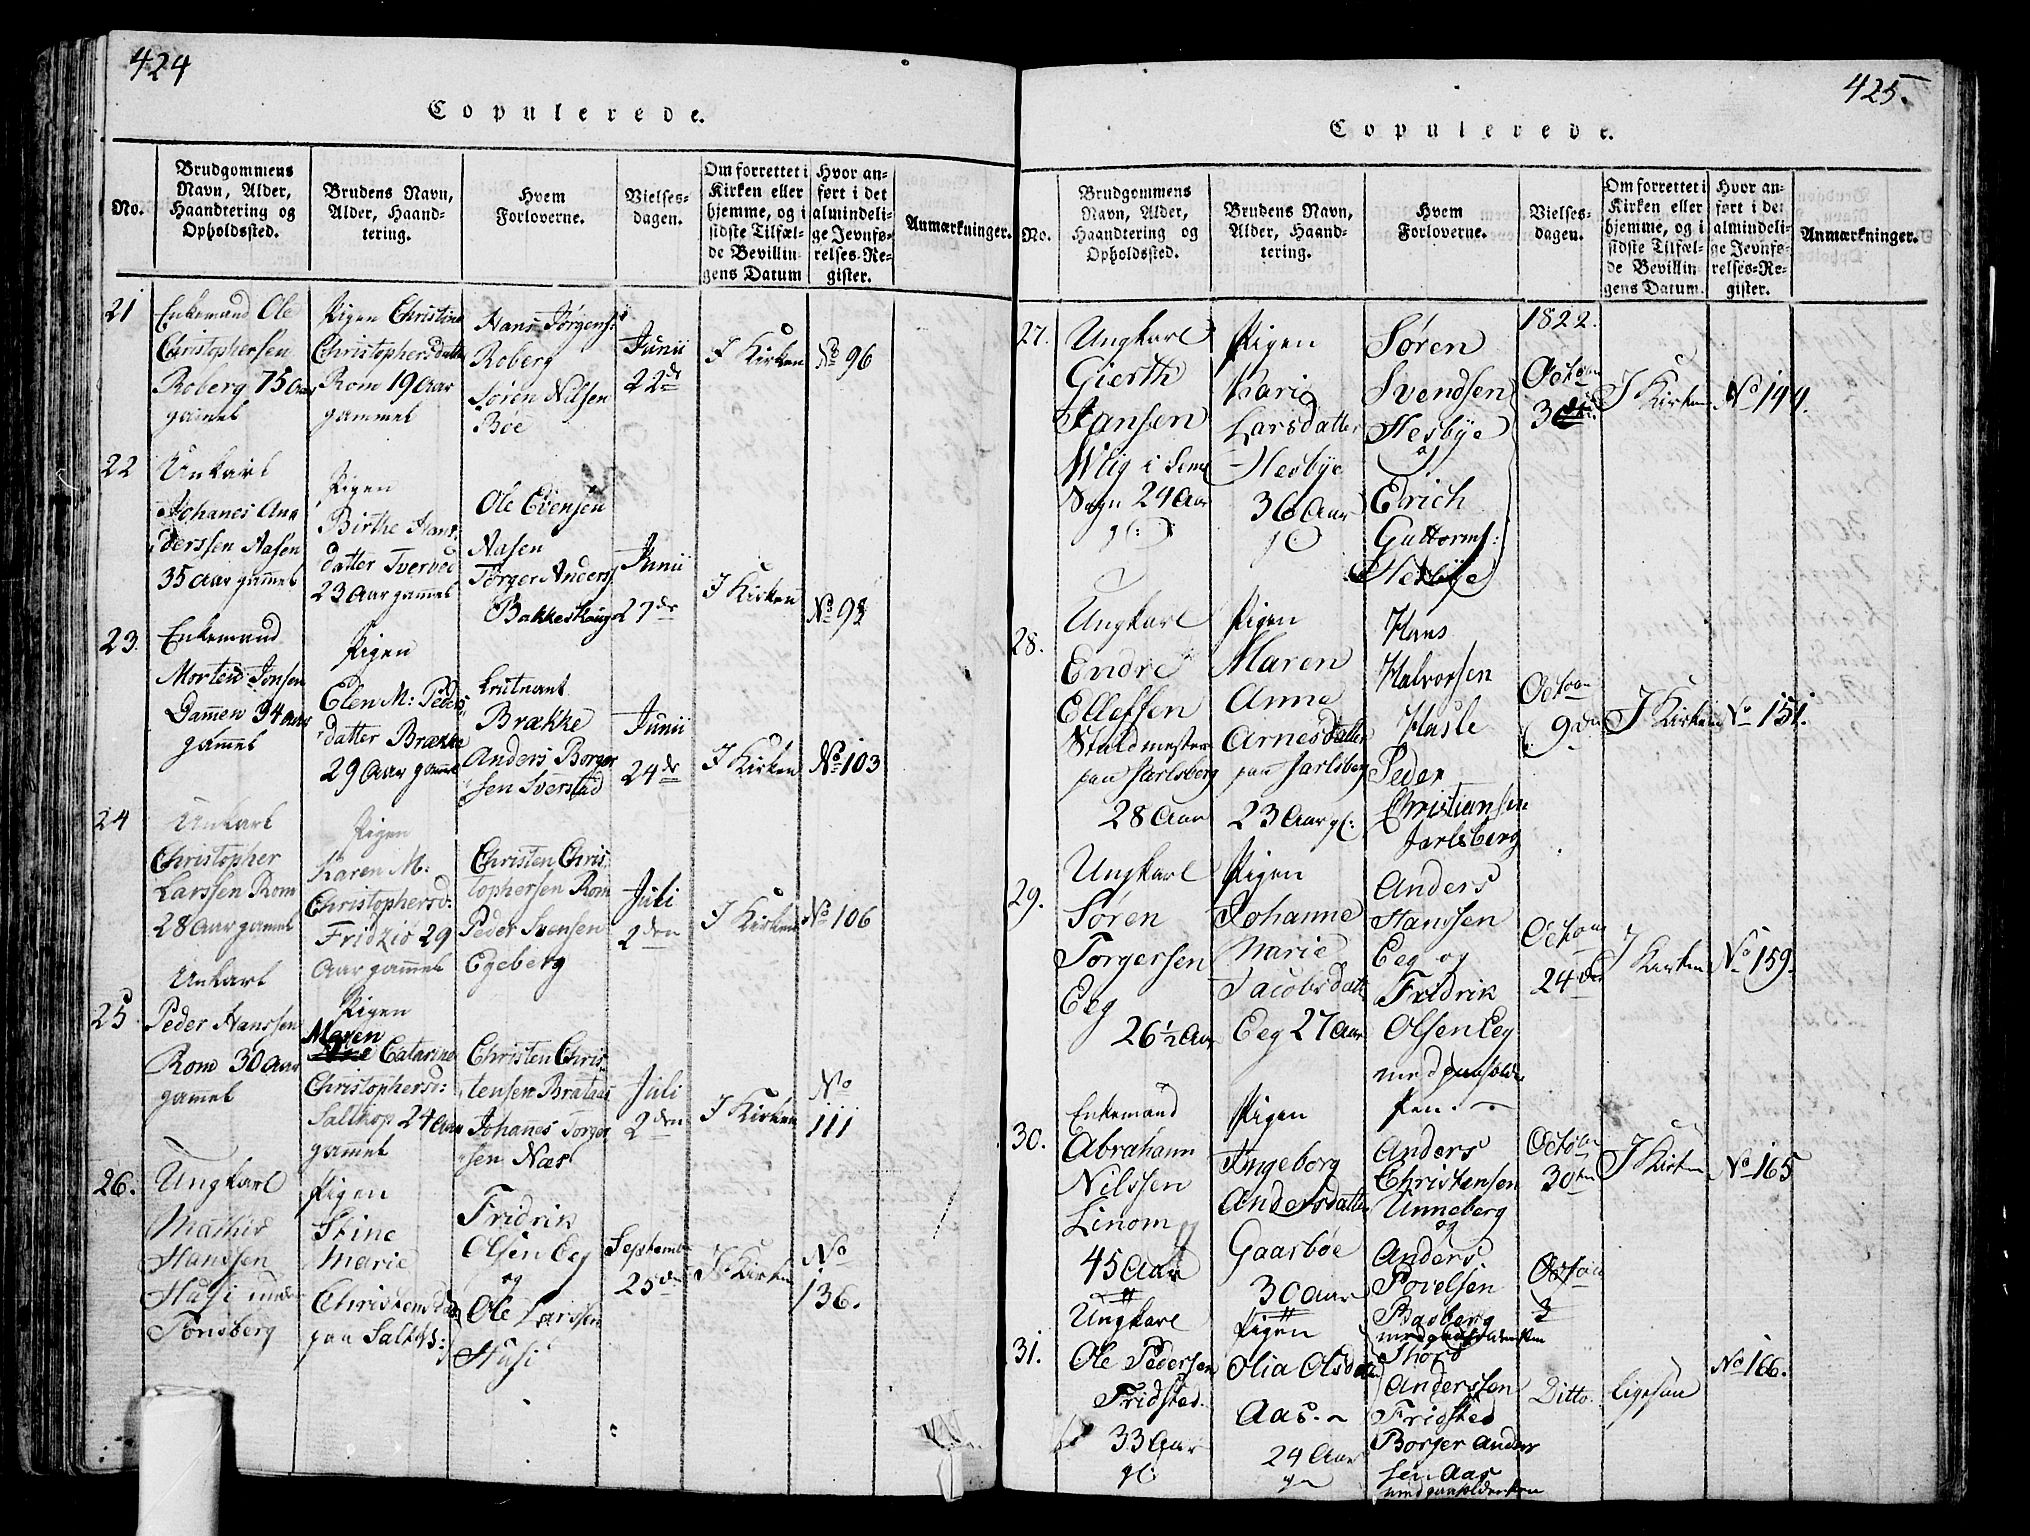 424
Copulerede.
No.
Brudgommens
Navn, Alder,
Haandtering og
Opholdssted.
Brudens Navn,
Alder, Haand-
tering.
Hvem
Forloverne.
Vielses-
dagen.
Om forrettet i
Kirken eller
hjemme, og i
sidste Tilfæl-
de Bevillin-
gens Datum
Hvor an-
ført i det
almindeli-
ge Jevnfø-
relses-Re-
gister.
Anmærkninger.
21
Enkemand Ole
Christophersen
Roberg 75 Aar
gamel
Pigen Christine
Christophersdatter
Rom 19 Aar
gammel
Hans Jørgens:
Roberg
Søren Nilsen
Bøe
Junii
22de
I Kirken
No 96
22
Unkarl
Johanes An
derssen Aasen
35 Aar gamel
Pigen
Birthe Hans
datter Tverved
23 Aar gamel
Ole Evensen
Aasen
Torger Anders
Bakkeskaug
Junii
27de
I Kirken
No 98
23.
Enkemand
Morten Jonsen
Dammen 34 Aar
gamel
Pigen
Elen M: Peders
datter Brække
29 Aar gamel
Leutnant
Brække
Anders Borger
sen Sverstad
Junii
24de
I Kirken
No 103
24
Unkarl
Christopher
Larssen Rom
28 Aar gamel
Pigen
Karen M:
Christophersd:
Fridziø 29
Aar gamel
Christen Chris
tophersen Rom
Peder Svensen
Egeberg
Juli
2den
I Kirken
No 106
25
Unkarl
Peder Hanssen
Rom 30 Aar
gamel
Pigen
Maren
Catarine
Christophersd:
Saltkop 24 Aar
gamel
Christen Chris
tensen Brataas
Johanes Torger
sen Næs
Juli
2den
I Kirken
No
111
26.
Ungkarl
Mathis
Hanssen
Husi under
Tonsberg
Pigen
Stine
Marie
Christensdat
paa Salt
Fridrik
Olsen Eeg
og
Ole Larssen
Husi
Septemb
25de
I Kirken
No
136.
425.
Copulerede.
No.
Brudgommens
Navn, Alder,
Haandtering og
Opholdssted.
Brudens Navn,
Alder, Haand-
tering.
Hvem
Forloverne.
Vielses-
dagen.
Om forrettet i
Kirken eller
hjemme, og i
sidste Tilfæl-
de Bevillin-
gens Datum.
Hvor an-
ført i det
almindeli-
ge Jevnfø-
relses-Re-
gister.
Anmærkninger.
27.
Ungkarl
Gierth
Jansen
Wlig i Sem
Sogn 24 Aar
gl:
Pigen
Kari
Larsdatter
Hesbye
36 Aar
Søren
Svendsen
Hesbye
og
Erich
Guttorms:
Hesbye
1822.
Octo
3die
I Kirken
No 144.
28.
Ungkarl
Endre
Ellefsen
Staldmester
paa Jarlsberg
28 Aar
Pigen
Maren
Anne
Arnesdatter
paa Jarlsberg
23 Aar gl:
Hans
Halvorsen
Hasle
Peder
Christiansen
Jarlsberg
Octo
9de
I Kirken
No 151.
29.
Ungkarl
Søren
Torgersen
Eeg
26 1/2 Aar
Pigen
Johanne
Marie
Jacobsdatt
Eeg 27 Aar
Anders
Hanssen
Eeg og
Fridrik
Olsen Eeg
med paaholden
Pen.
Octo
24de
I Kirken
No 159.
30.
Enkemand
Abraham
Nilssen
Linom
45 Aar
Pigen
Ingeborg
Andersdatter
Gaarbøe
30 Aar
Anders
Christensen
Unneberg
og
Anders
Povelsen
Basberg
Octo
30te
I Kirken
No 165
31.
Ungkarl
Ole Pedersen
Fridsted.
33 Aar
gl:
Pigen
Olia Olsda
Aas.
24 Aar
Thor
Anderssen
Fridsted
Borger Anders
sen Aas
med paaholden Pen
Ditto.
ligesaa
No 166.